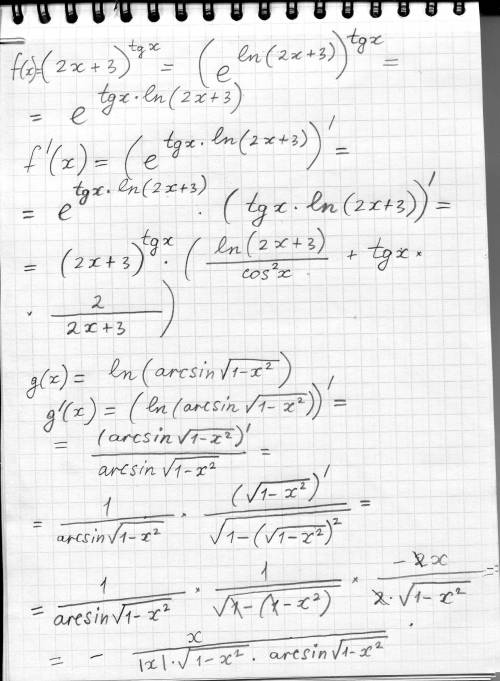 f(x)=(2x+3)^{tgx} = (e^{ln(2x+3)})^{tgx} =
= e^{tgx·ln(2x+3)}
f'(x) = (e^{tgx·ln(2x+3)})' =
= e^{tgx·ln(2x+3)} · (tgx·ln(2x+3))' =
= (2x+3)^{tgx} · ( \frac{ln(2x+3)}{cos²x} + tgx ×
× \frac{2}{2x+3} )
g(x) = ln(arcsin√(1-x²))
g'(x) = (ln(arcsin√(1-x²)))' =
= \frac{(arcsin√(1-x²))'}{arcsin√(1-x²)} =
= \frac{1}{arcsin√(1-x²)} × \frac{(√(1-x²))'}{√(1-(√(1-x²))²)} =
= \frac{1}{arcsin√(1-x²)} × \frac{1}{√(1-(1-x²))} × \frac{-2x}{2·√(1-x²)} =
= - \frac{x}{|x|·√(1-x²) · arcsin√(1-x²)} .